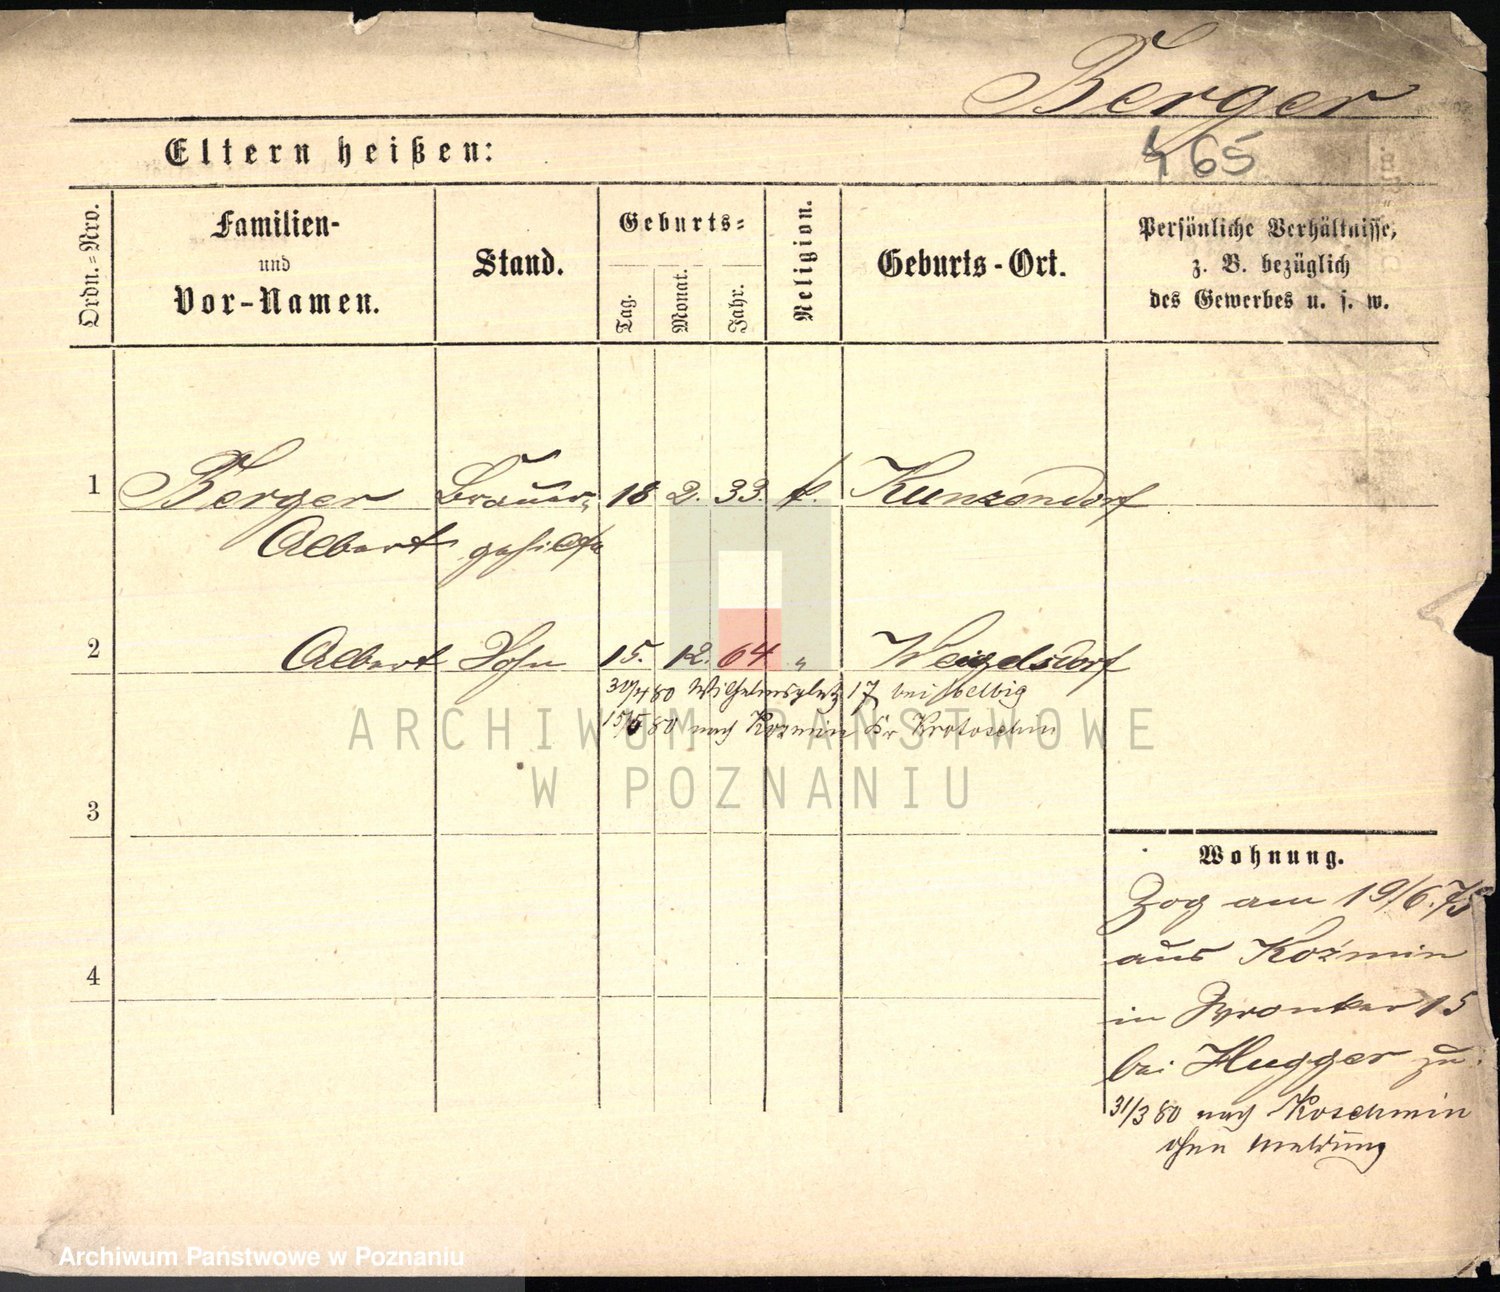 Berger
465
Eltern heißen:
Ordn.=Nro.
Familien-
und
Vor-Namen.
Stand.
Geburts=
Tag.
Monat.
Jahr.
Religion.
Geburts-Ort.
Persönliche Verhältnisse,
z. B. bezüglich
des Gewerbes u. s. w.
1 Berger Brauer= 18 2. 33. k. Kunzendorf
Albert gehilfe
2 Albert Sohn 15. 12. 64 " Weigelsdorf
30/4 80 Wilhelmsplatz 17 bei Helbig
15/5 80 nach Kozmin Kr Krotoschin
3
4
Wohnung.
Zog am 19/6.75
aus Kozmin
in Wronker 15
bei Hugger zu.
31/3 80 nach Koschmin
ohne Meldung
ARCHIWUM PAŃSTWOWE
W POZNANIU
Archiwum Państwowe w Poznaniu